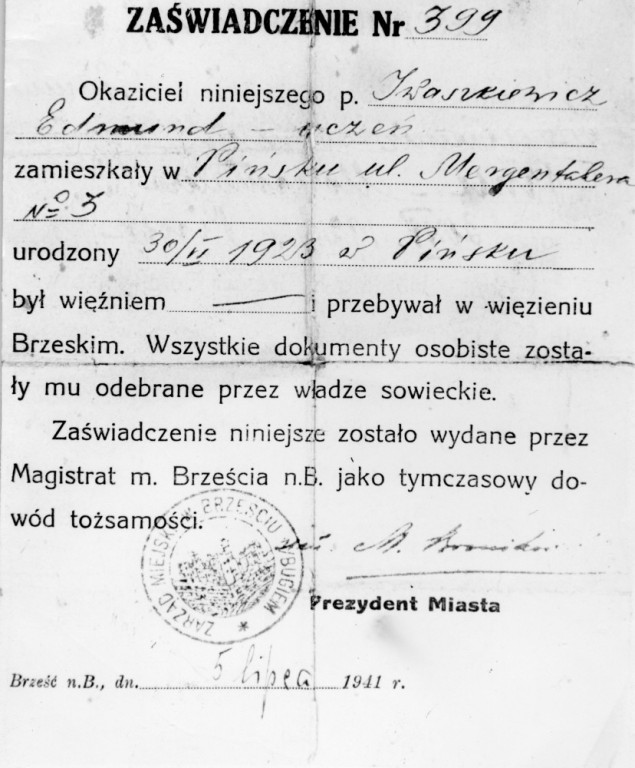 ZAŚWIADCZENIE Nr 399
Okaziciel niniejszego p. Iwaszkiewicz
Edmund – uczeń
zamieszkały w Pińsku ul. Mergentalera
№ 3
urodzony 30/II 1923 w Pińsku
był więźniem — i przebywał w więzieniu
Brzeskim. Wszystkie dokumenty osobiste zosta-
ły mu odebrane przez władze sowieckie.
Zaświadczenie niniejsze zostało wydane przez
Magistrat m. Brześcia n.B. jako tymczasowy do-
wód tożsamości.
ZARZĄD MIEJSKI W BRZEŚCIU N/BUGIEM
Prezydent Miasta
Brześć n.B., dn. 5 lipca 1941 r.